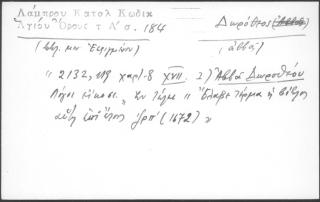 Λάμπρου Κατάλ Κωδικ
Ἁγίου Ὄρους τ Α' σ. 184
Δωρόθεος (Ἀββᾶ)
(ἀββᾶ)
" 2132, 119 χαρτ. 8 XVII. 2) Ἀββᾶ Δωροθέου
Λόγοι εἴκοσι. Ἐν τέλει " Ἔλαβε τέρμα ἡ βίβλος
αὕτη ἐπὶ ἔτους ͵ζρπ' (1672) "